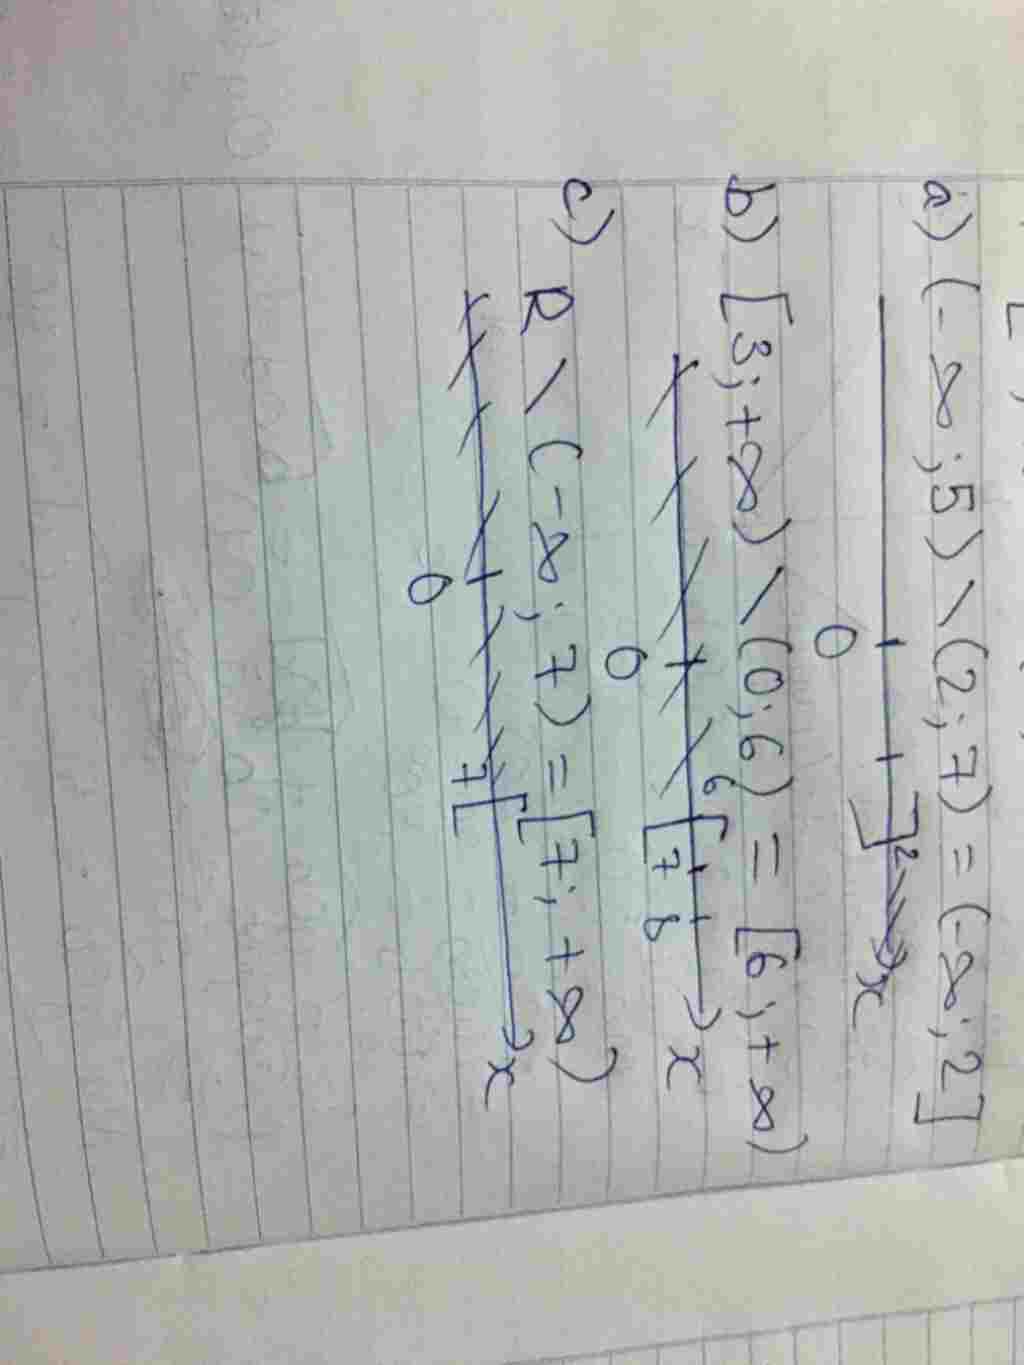 a) (-∞;5) \ (2;7) = (-∞;2]
0 ] 2 x
b) [3;+∞) \ (0;6) = [6;+∞)
0 6 [ 7 8 x
c) R \ (-∞;7) = [7;+∞)
0 7 [ x